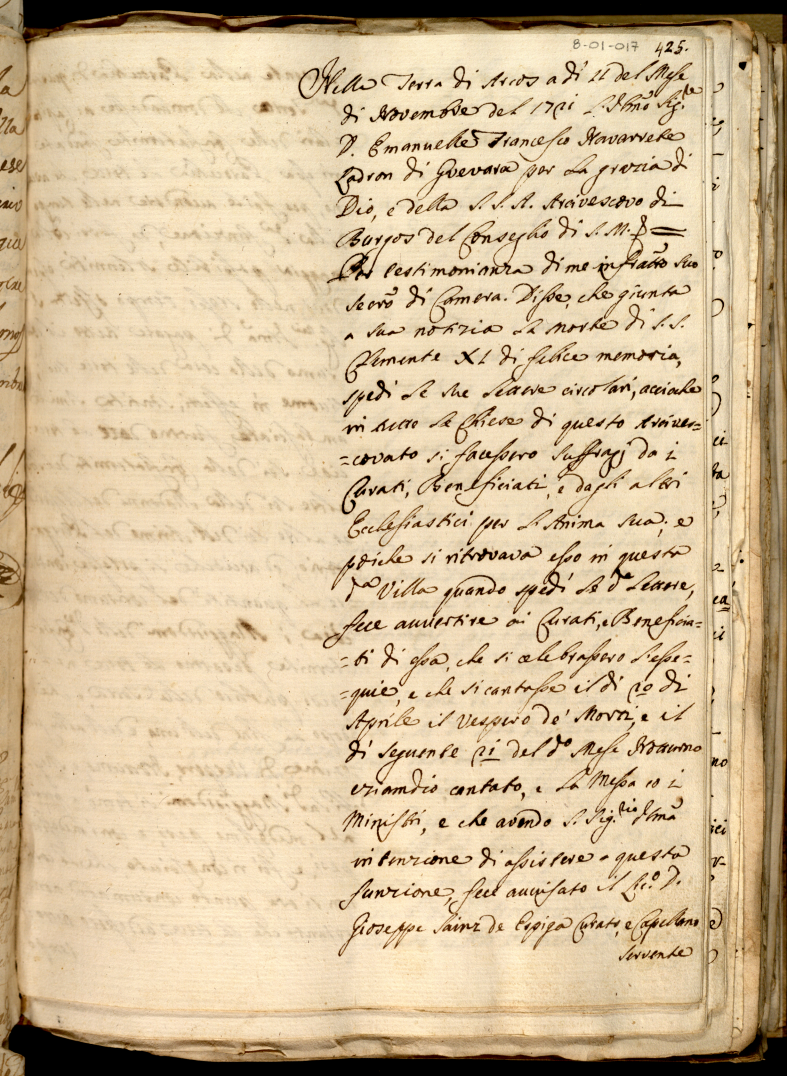 8-01-017 425.
Nella Terra di Arcos a dì 11 del Mese
di Novembre del 1721 L'Illmo Sigre
D. Emanuelle Francesco Navarrete
Ladron di Guevara per la grazia di
Dio, e della S.S.A. Arcivescovo di
Burgos del Conseglio di S.M.
Per testimonianza di me infratto suo
Secrro di Camera. Disse, che giunta
a sua notizia la morte di S.S.
Clemente XI di felice memoria,
spedì le sue lettere circolari, acciocche
in tutte le Chiese di questo Arcives=
=covato si facessero suffragj da i
Curati, Beneficiati, e dagli altri
Ecclesiastici per l'Anima sua; e
poiche si ritrovava esso in questa
da Villa quando spedì le de Lettere,
fece avvertire ai Curati, e Beneficia=
=ti di essa, che si celebrassero l'esse=
=quie, e che si cantasse il dì 20 di
Aprile il Vespero de' Morti, e il
dì seguente 21 del do Mese Notturno
eziamdio cantato, e la Messa co i
Ministri, e che avendo S. Sigria Illma
intenzione di assistere a questa
funzione, fece avvisato il Lico D.
Gioseppe Sainz de Espiga Curato, e Capellano
servente